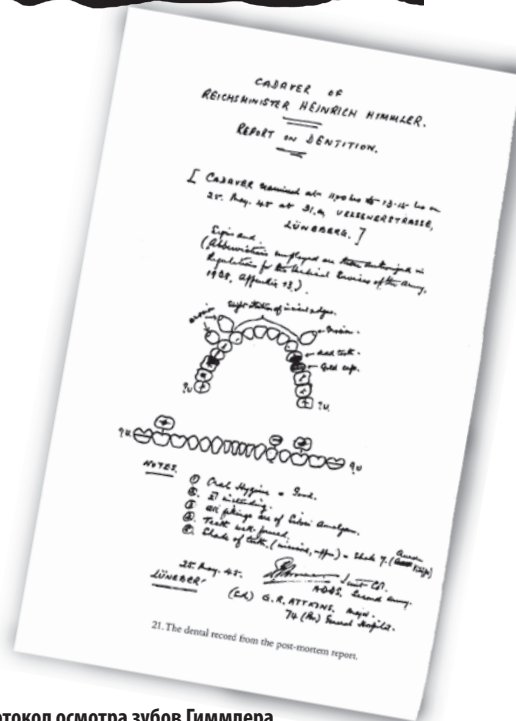 CADAVER OF
REICHSMINISTER HEINRICH HIMMLER.
REPORT ON DENTITION.
[ CADAVER examined at 1100 hrs to 13.15 hrs on
25. May. 45 at 31.a, UELZENERSTRASSE,
LÜNEBERG. ]
Signs and
(Abbreviations employed are those authorised in
Regulations for the Medical Services of the Army,
1938, Appendix 13).
incisal edges.
gold caps.
?U
?U.
?U.
?U
NOTES.
① Oral Hygiene = Good.
standing.
③ All fillings are of Silver Amalgam.
④ Teeth well formed.
⑤ Shade of teeth, (incisors, upper) = Shade 7.
25. May. 45.
LÜNEBERG
ADDS. Second Army.
(Sd) G.R. ATTKINS. Major.
74 (Br) General Hospital.
21. The dental record from the post-mortem report.
отокол осмотра зубов Гиммлера